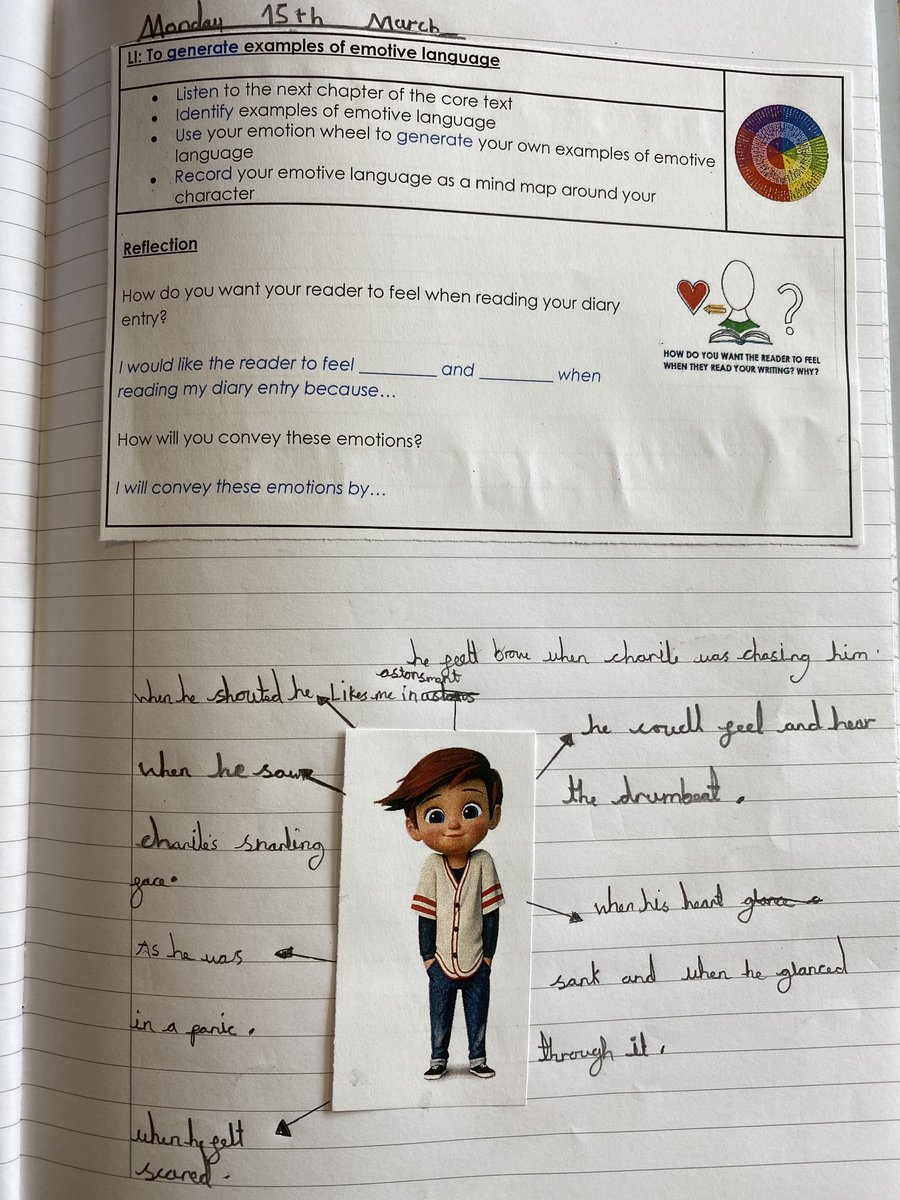 Monday 15th March
LI: To generate examples of emotive language
• Listen to the next chapter of the core text
• Identify examples of emotive language
• Use your emotion wheel to generate your own examples of emotive
language
• Record your emotive language as a mind map around your
character
Reflection
How do you want your reader to feel when reading your diary
entry?
HOW DO YOU WANT THE READER TO FEEL
WHEN THEY READ YOUR WRITING? WHY?
I would like the reader to feel ________ and ________ when
reading my diary entry because...
How will you convey these emotions?
I will convey these emotions by...
he feelt brave when charile was chasing him.
astonsment
when he shouted he Likes me in
he coudl feel and hear
the drumbeat.
when he saw
charile's snarling
face.
when his heart glance
sank and when he glanced
through it.
As he was
in a panic.
when he felt
scared.